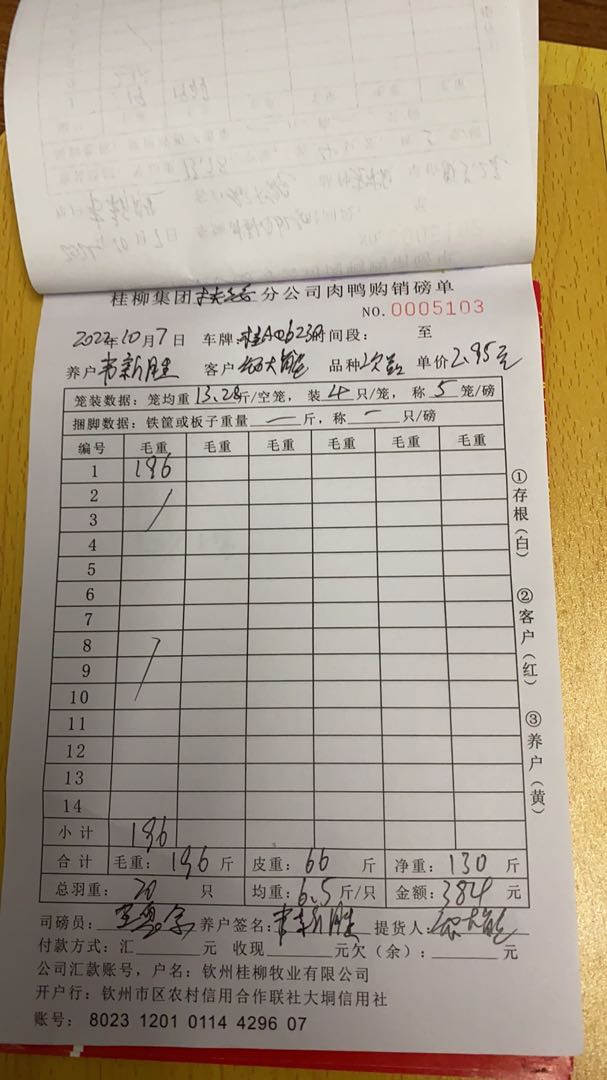 桂柳集团 分公司肉鸭购销磅单
NO.0005103
2022年10月7日 车牌:桂A 时间段: 至
养户韦新胜 客户 品种次 单价2.95元
笼装数据: 笼均重13.28斤/空笼, 装4只/笼, 称5笼/磅
捆脚数据: 铁筐或板子重量—斤, 称—只/磅
编号 毛重 毛重 毛重 毛重 毛重 毛重
1 196
2
3
4
5
6
7
8
9
10
11
12
13
14
小计 196
合计 毛重: 196斤 皮重: 66斤 净重: 130斤
总羽重: 20只 均重: 6.5斤/只 金额: 384元
司磅员: 养户签名: 韦新胜 提货人:
付款方式: 汇 元 收现 元欠(余): 元
公司汇款账号, 户名: 钦州桂柳牧业有限公司
开户行: 钦州市区农村信用合作联社大垌信用社
账号: 8023 1201 0114 4296 07
①存根(白)
②客户(红)
③养户(黄)